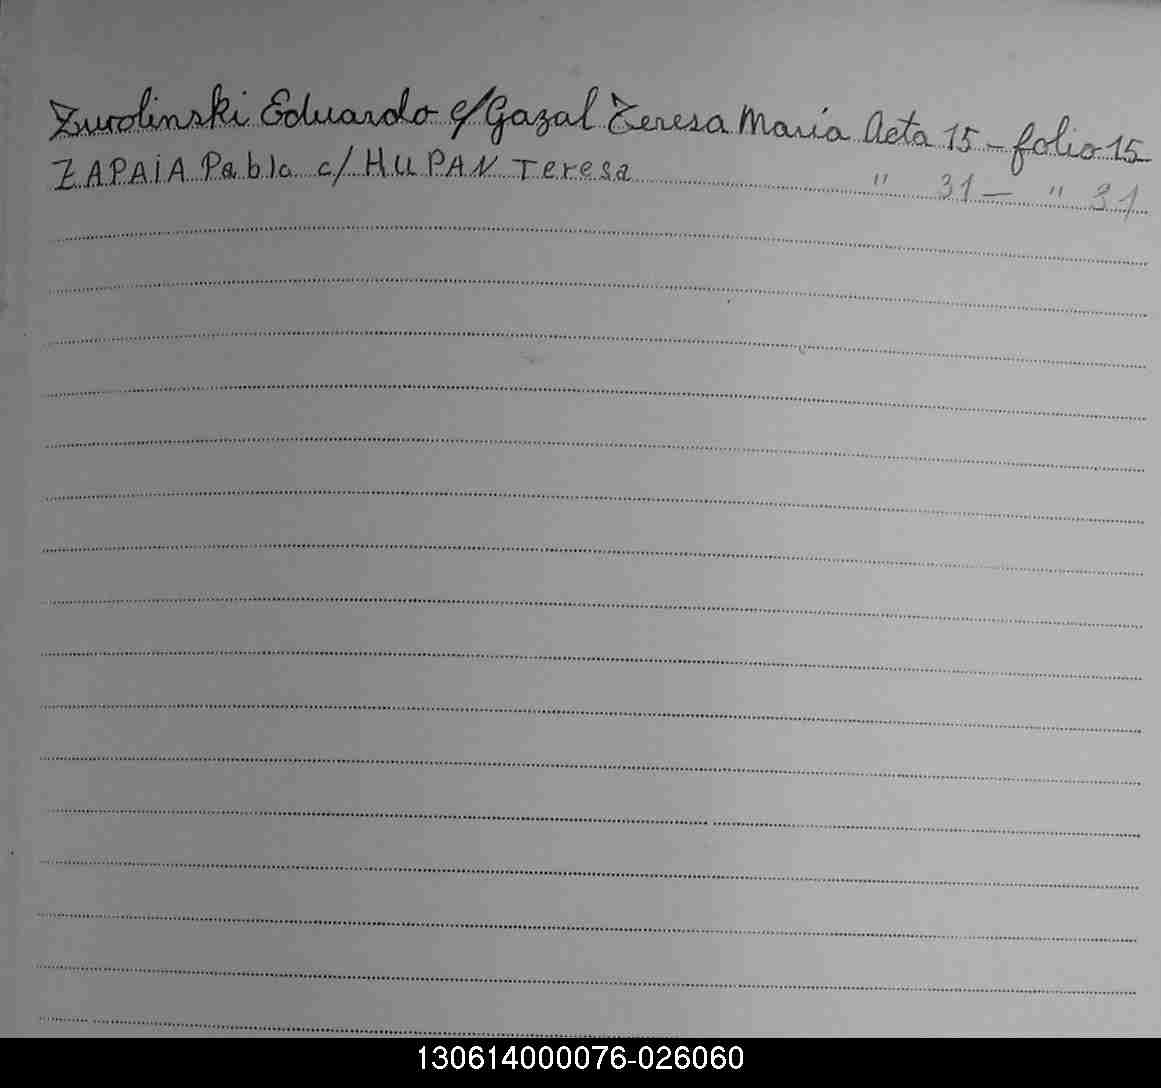 Zurolinski Eduardo c/ Gazal Teresa María Acta 15 - folio 15
ZAPAIA Pablo c/ HUPAN Teresa " 31 - " 31
130614000076-026060